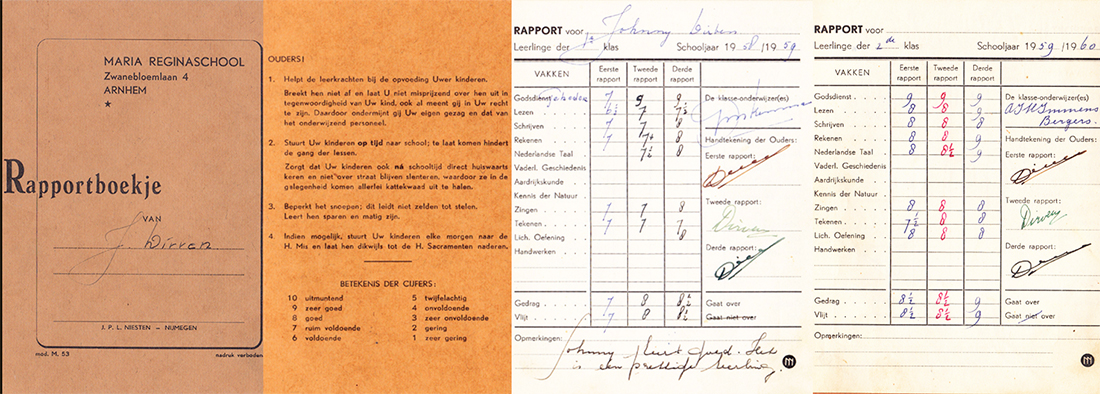 MARIA REGINASCHOOL
Zwanebloemlaan 4
ARNHEM
Rapportboekje
VAN
J. Dirven
J. P. L. NIESTEN - NIJMEGEN
mod. M. 53
nadruk verboden
OUDERS!
1. Helpt de leerkrachten bij de opvoeding Uwer kinderen.
Breekt hen niet af en laat U niet misprijzend over hen uit in
tegenwoordigheid van Uw kind, ook al meent gij in Uw recht
te zijn. Daardoor ondermijnt gij Uw eigen gezag en dat van
het onderwijzend personeel.
2. Stuurt Uw kinderen op tijd naar school; te laat komen hindert
de gang der lessen.
Zorgt dat Uw kinderen ook ná schooltijd direct huiswaarts
keren en niet over straat blijven slenteren, waardoor ze in de
gelegenheid komen allerlei kattekwaad uit te halen.
3. Beperkt het snoepen; dit leidt niet zelden tot stelen.
Leert hen sparen en matig zijn.
4. Indien mogelijk, stuurt Uw kinderen elke morgen naar de
H. Mis en laat hen dikwijls tot de H. Sacramenten naderen.
BETEKENIS DER CIJFERS:
10 uitmuntend
9 zeer goed
8 goed
7 ruim voldoende
6 voldoende
5 twijfelachtig
4 onvoldoende
3 zeer onvoldoende
2 gering
1 zeer gering
RAPPORT voor Johnny Dirven
Leerlinge der 1e klas Schooljaar 1958/1959
VAKKEN Eerste rapport Tweede rapport Derde rapport
Godsdienst 7 9 8
Lezen 6½ 7 7½
Schrijven 7 7 8
Rekenen 7 7+ 8
Nederlandse Taal 7½ 8
Vaderl. Geschiedenis
Aardrijkskunde
Kennis der Natuur
Zingen 7 7 8
Tekenen 7 7 7
Lich. Oefening 8
Handwerken
Gedrag 7 8 8½
Vlijt 7 8 8½
De klasse-onderwijzer(es)
Handtekening der Ouders:
Eerste rapport:
Tweede rapport:
Dirven
Derde rapport:
Gaat over
Gaat niet over
Opmerkingen: Johnny fluit goed. Het
is een prettige leerling.
RAPPORT voor
Leerlinge der 2de klas Schooljaar 1959/1960
VAKKEN Eerste rapport Tweede rapport Derde rapport
Godsdienst 9 9 9
Lezen 8 8 9
Schrijven 8 8 8
Rekenen 8 8 9
Nederlandse Taal 8 8½ 9
Vaderl. Geschiedenis
Aardrijkskunde
Kennis der Natuur
Zingen 8 8 8
Tekenen 7½ 8 8
Lich. Oefening 8 8 8
Handwerken
Gedrag 8½ 8½ 9
Vlijt 8½ 8½ 9
De klasse-onderwijzer(es)
Bergers.
Handtekening der Ouders:
Eerste rapport:
Tweede rapport:
Dirven
Derde rapport:
Gaat over
Gaat niet over
Opmerkingen: